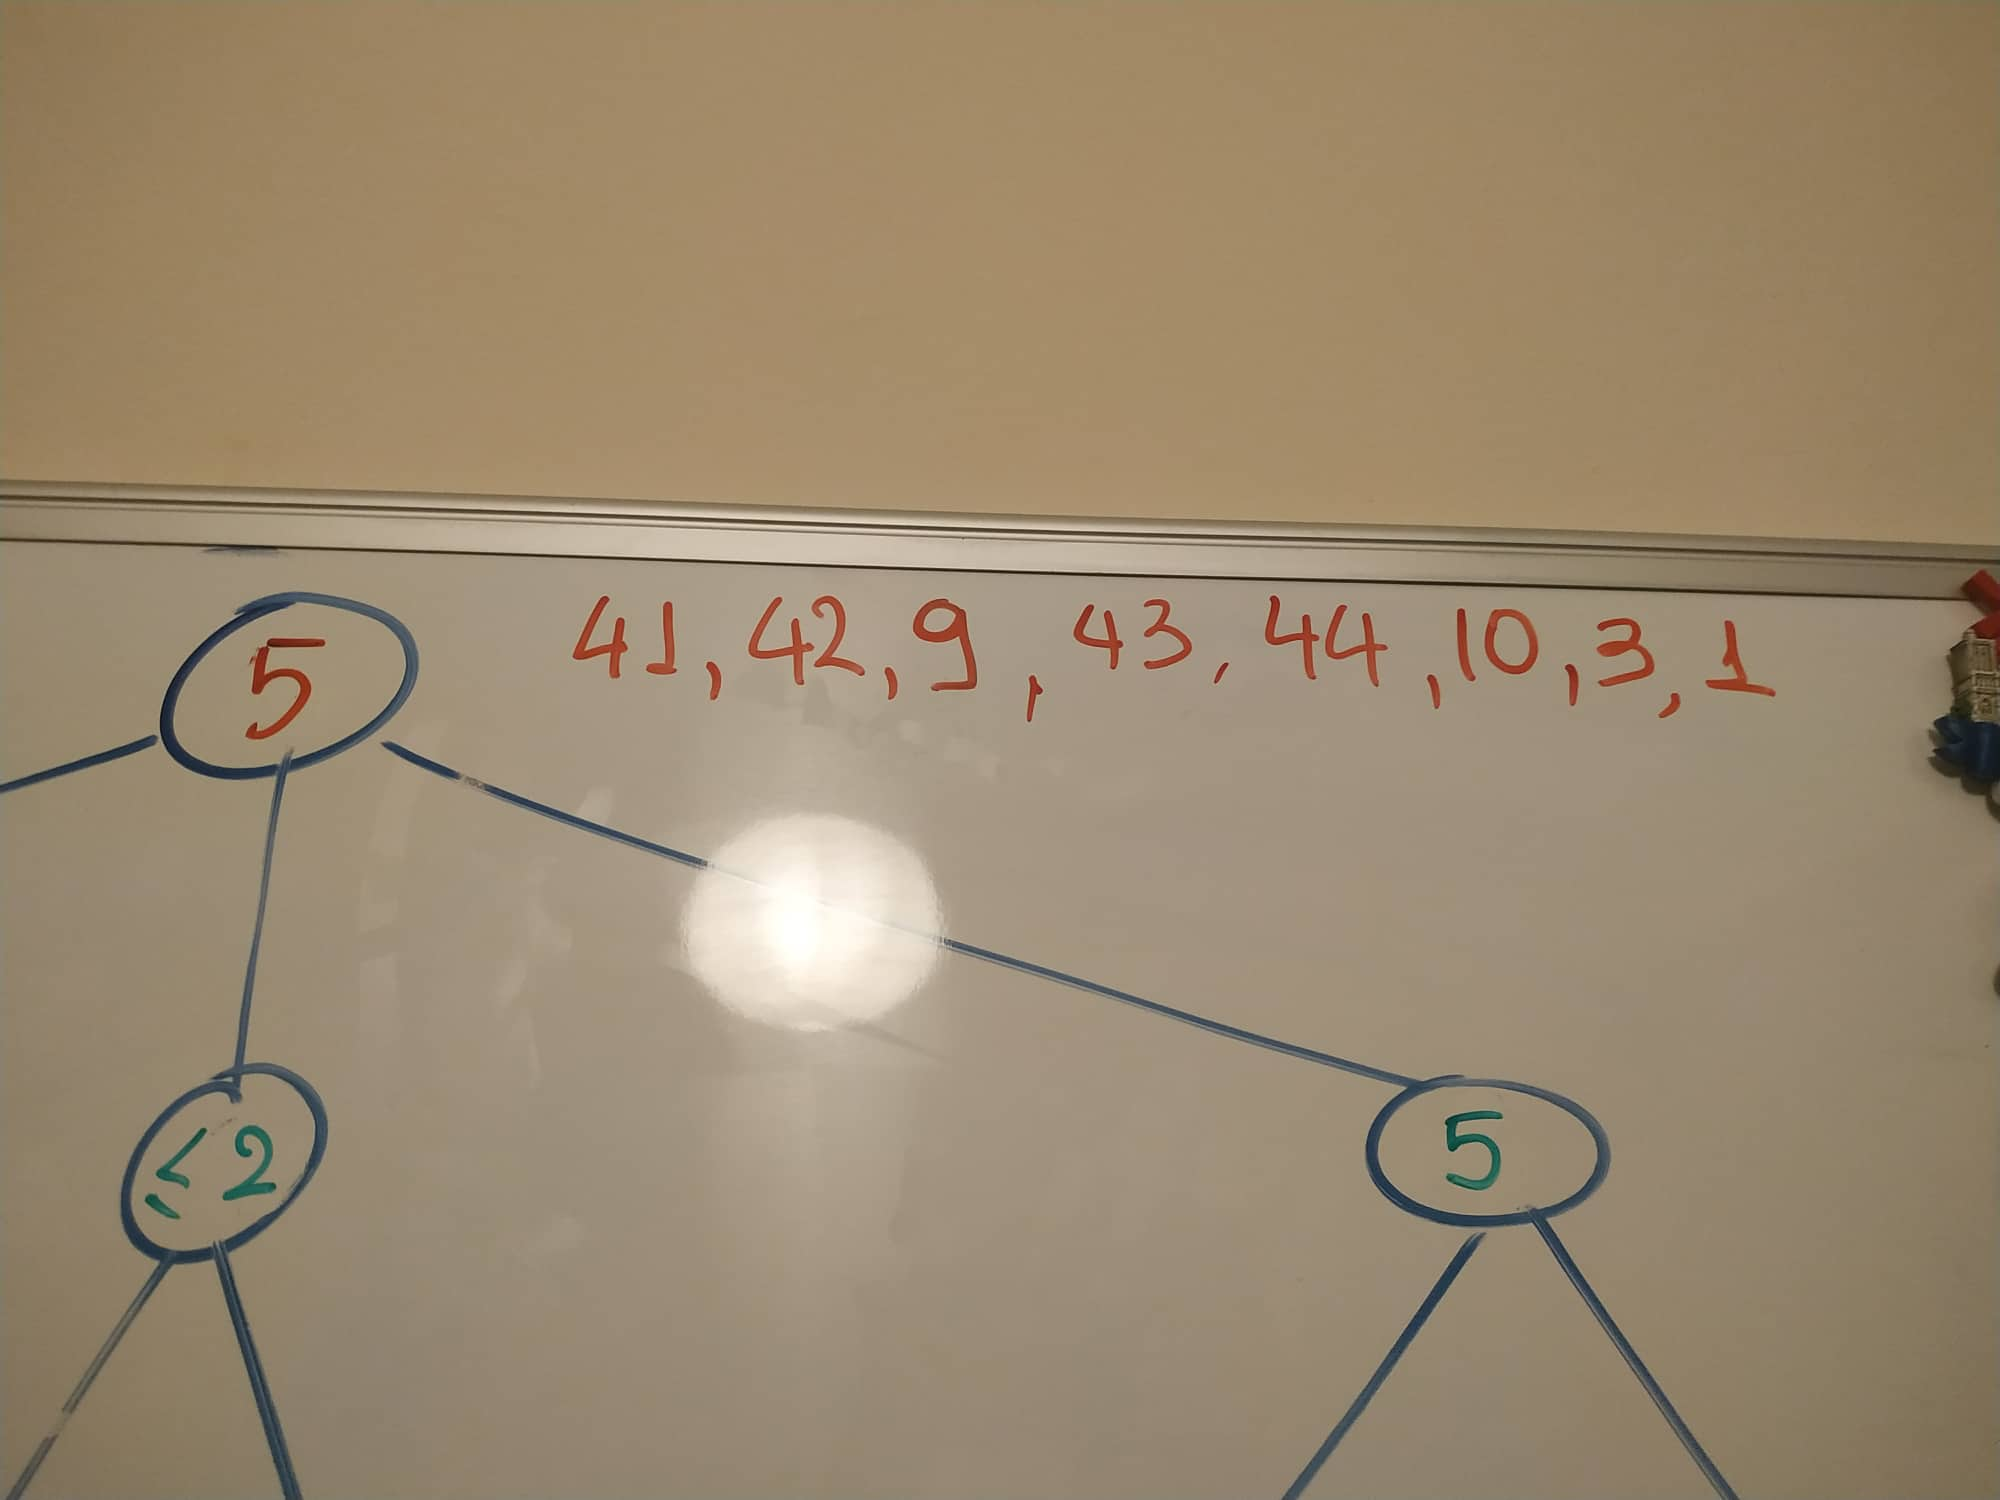 5 41, 42, 9, 43, 44, 10, 3, 1
≤2 5